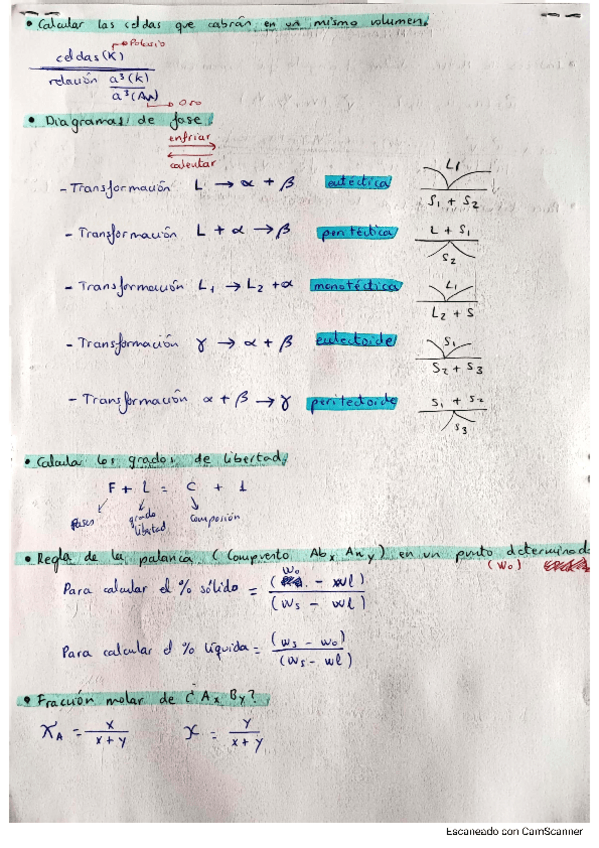 • Calcular las celdas que cabrán en un mismo volumen.
Potasio
celdas (K)
relación a³(K)
a³(Au)
Oro
• Diagramas de fase.
enfriar
calentar
- Transformación L → α + β eutéctica L1
S1 + S2
- Transformación L + α → β peritéctica L + S1
S2
- Transformación L1 → L2 + α monotéctica L1
L2 + S
- Transformación γ → α + β eutectoide S1
S2 + S3
- Transformación α + β → γ peritectoide S1 + S2
S3
• Calcula los grados de libertad.
F + L = C + 1
fases grado libertad composión
• Regla de la palanca (Compuesto Abx Any) en un punto determinado
(Wo)
Para calcular el % sólido = (Wo - Wl)
(Ws - Wl)
Para calcular el % líquida = (Ws - Wo)
(Ws - Wl)
• Fracción molar de ¿Ax By?
XA = x / x + y X = y / x + y
Escaneado con CamScanner